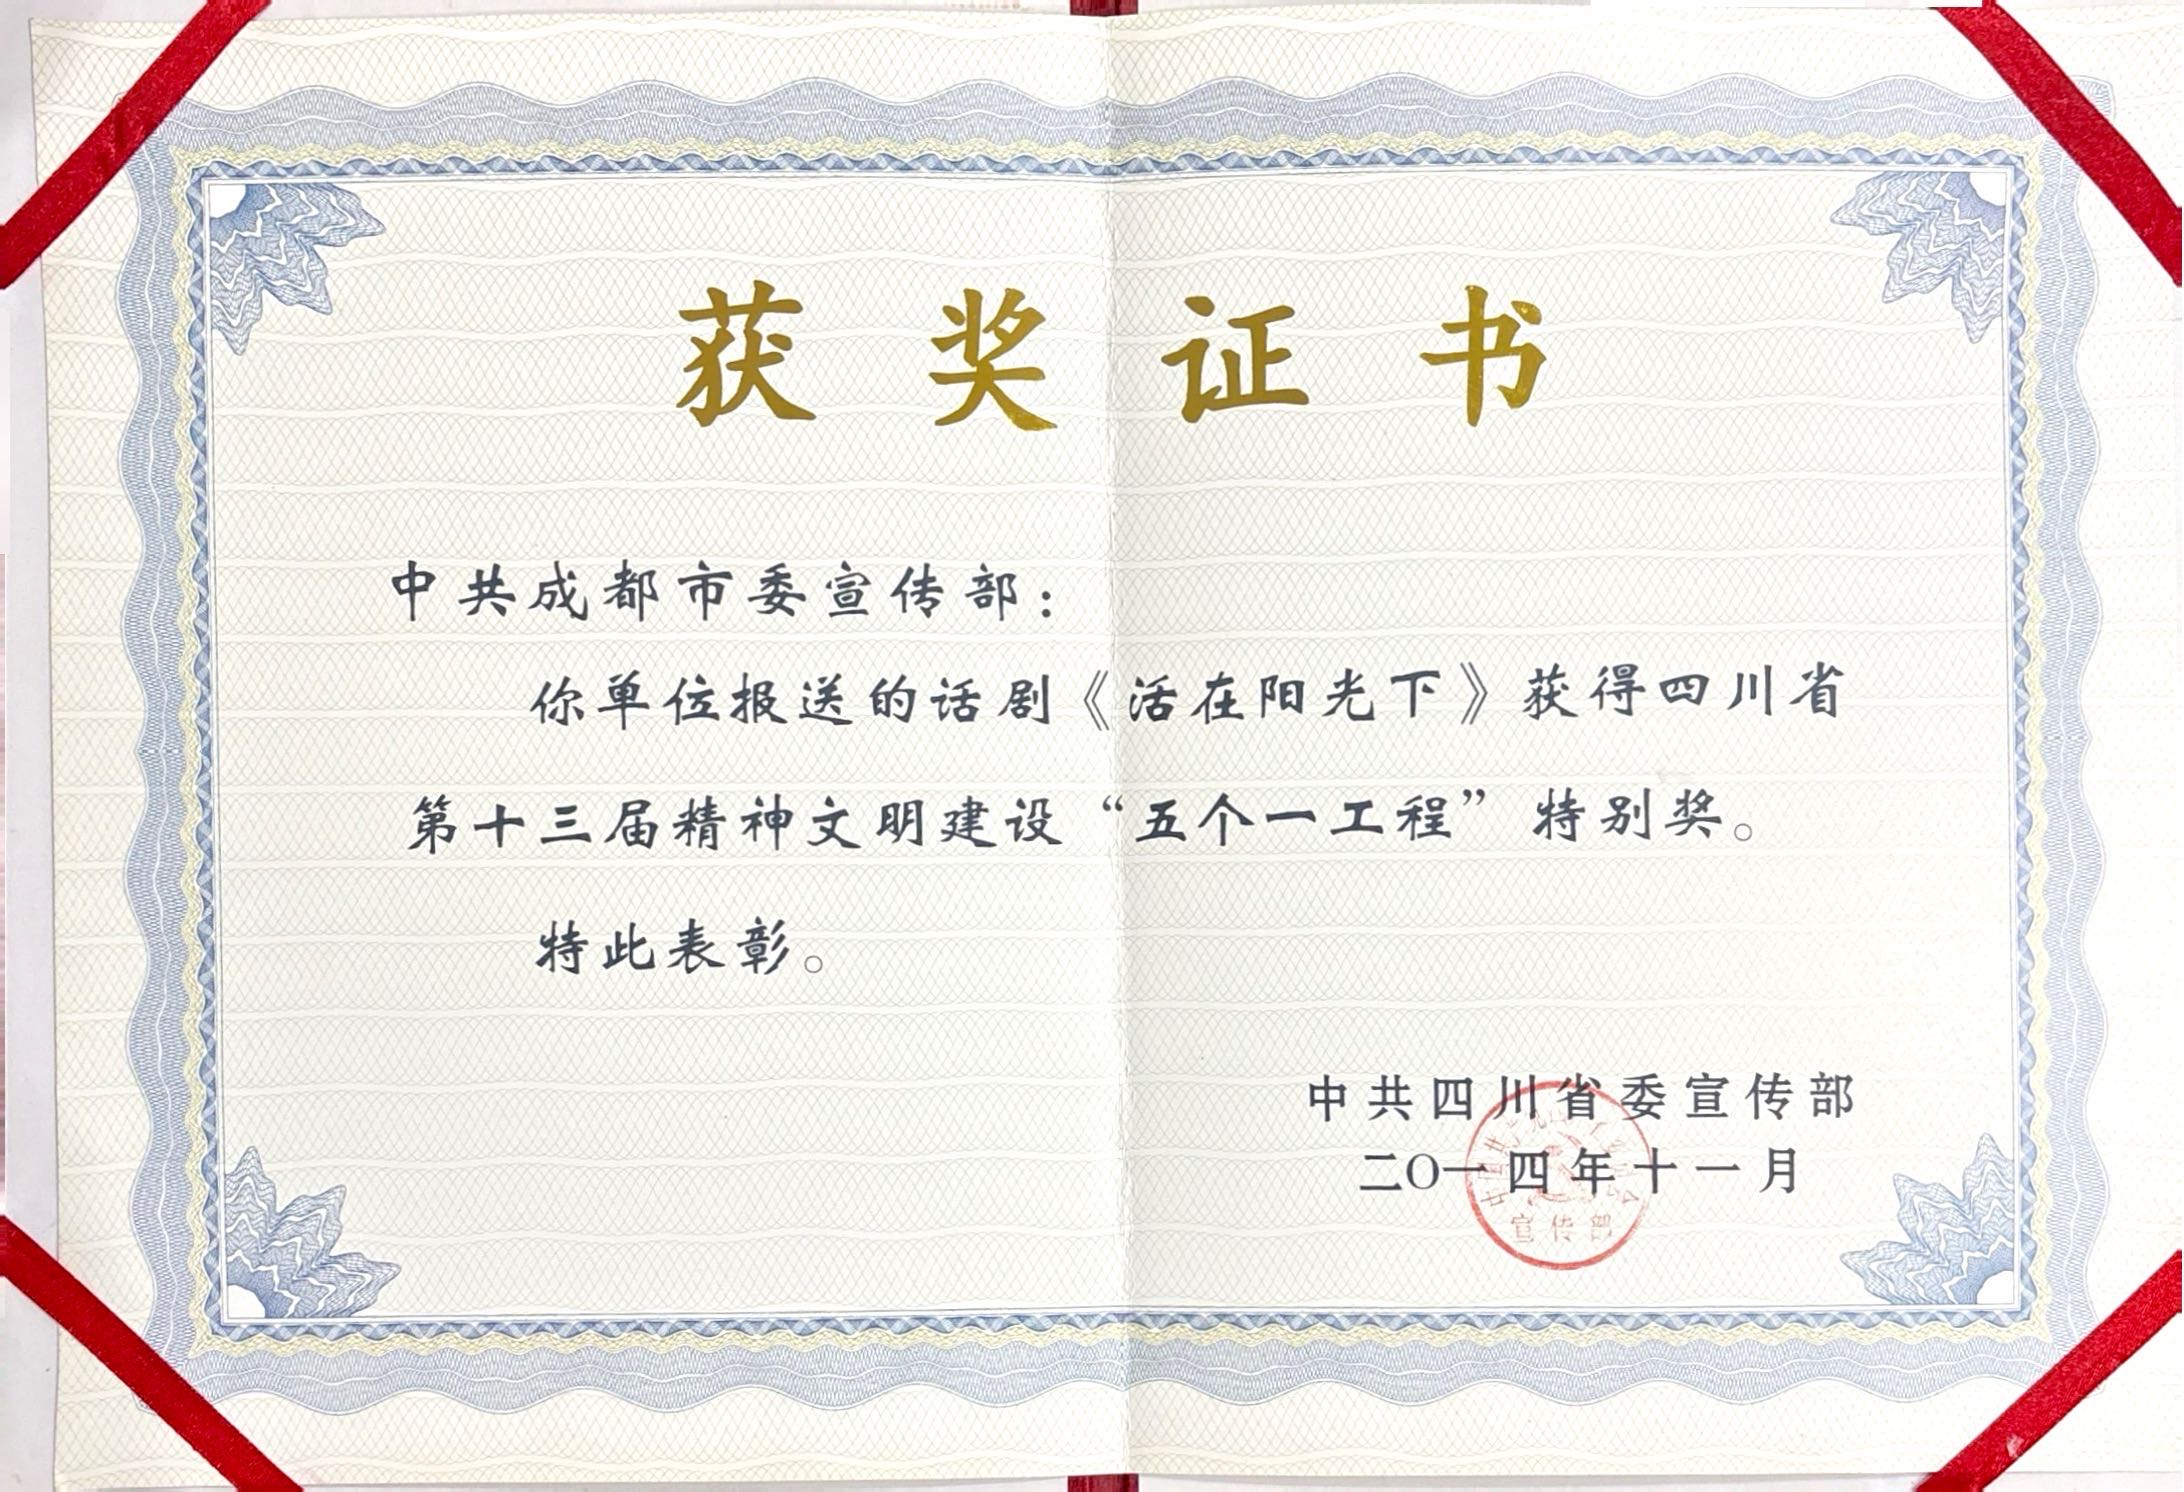 获奖证书
中共成都市委宣传部：
你单位报送的话剧《活在阳光下》获得四川省
第十三届精神文明建设“五个一工程”特别奖。
特此表彰。
中共四川省委宣传部
二〇一四年十一月
宣传部